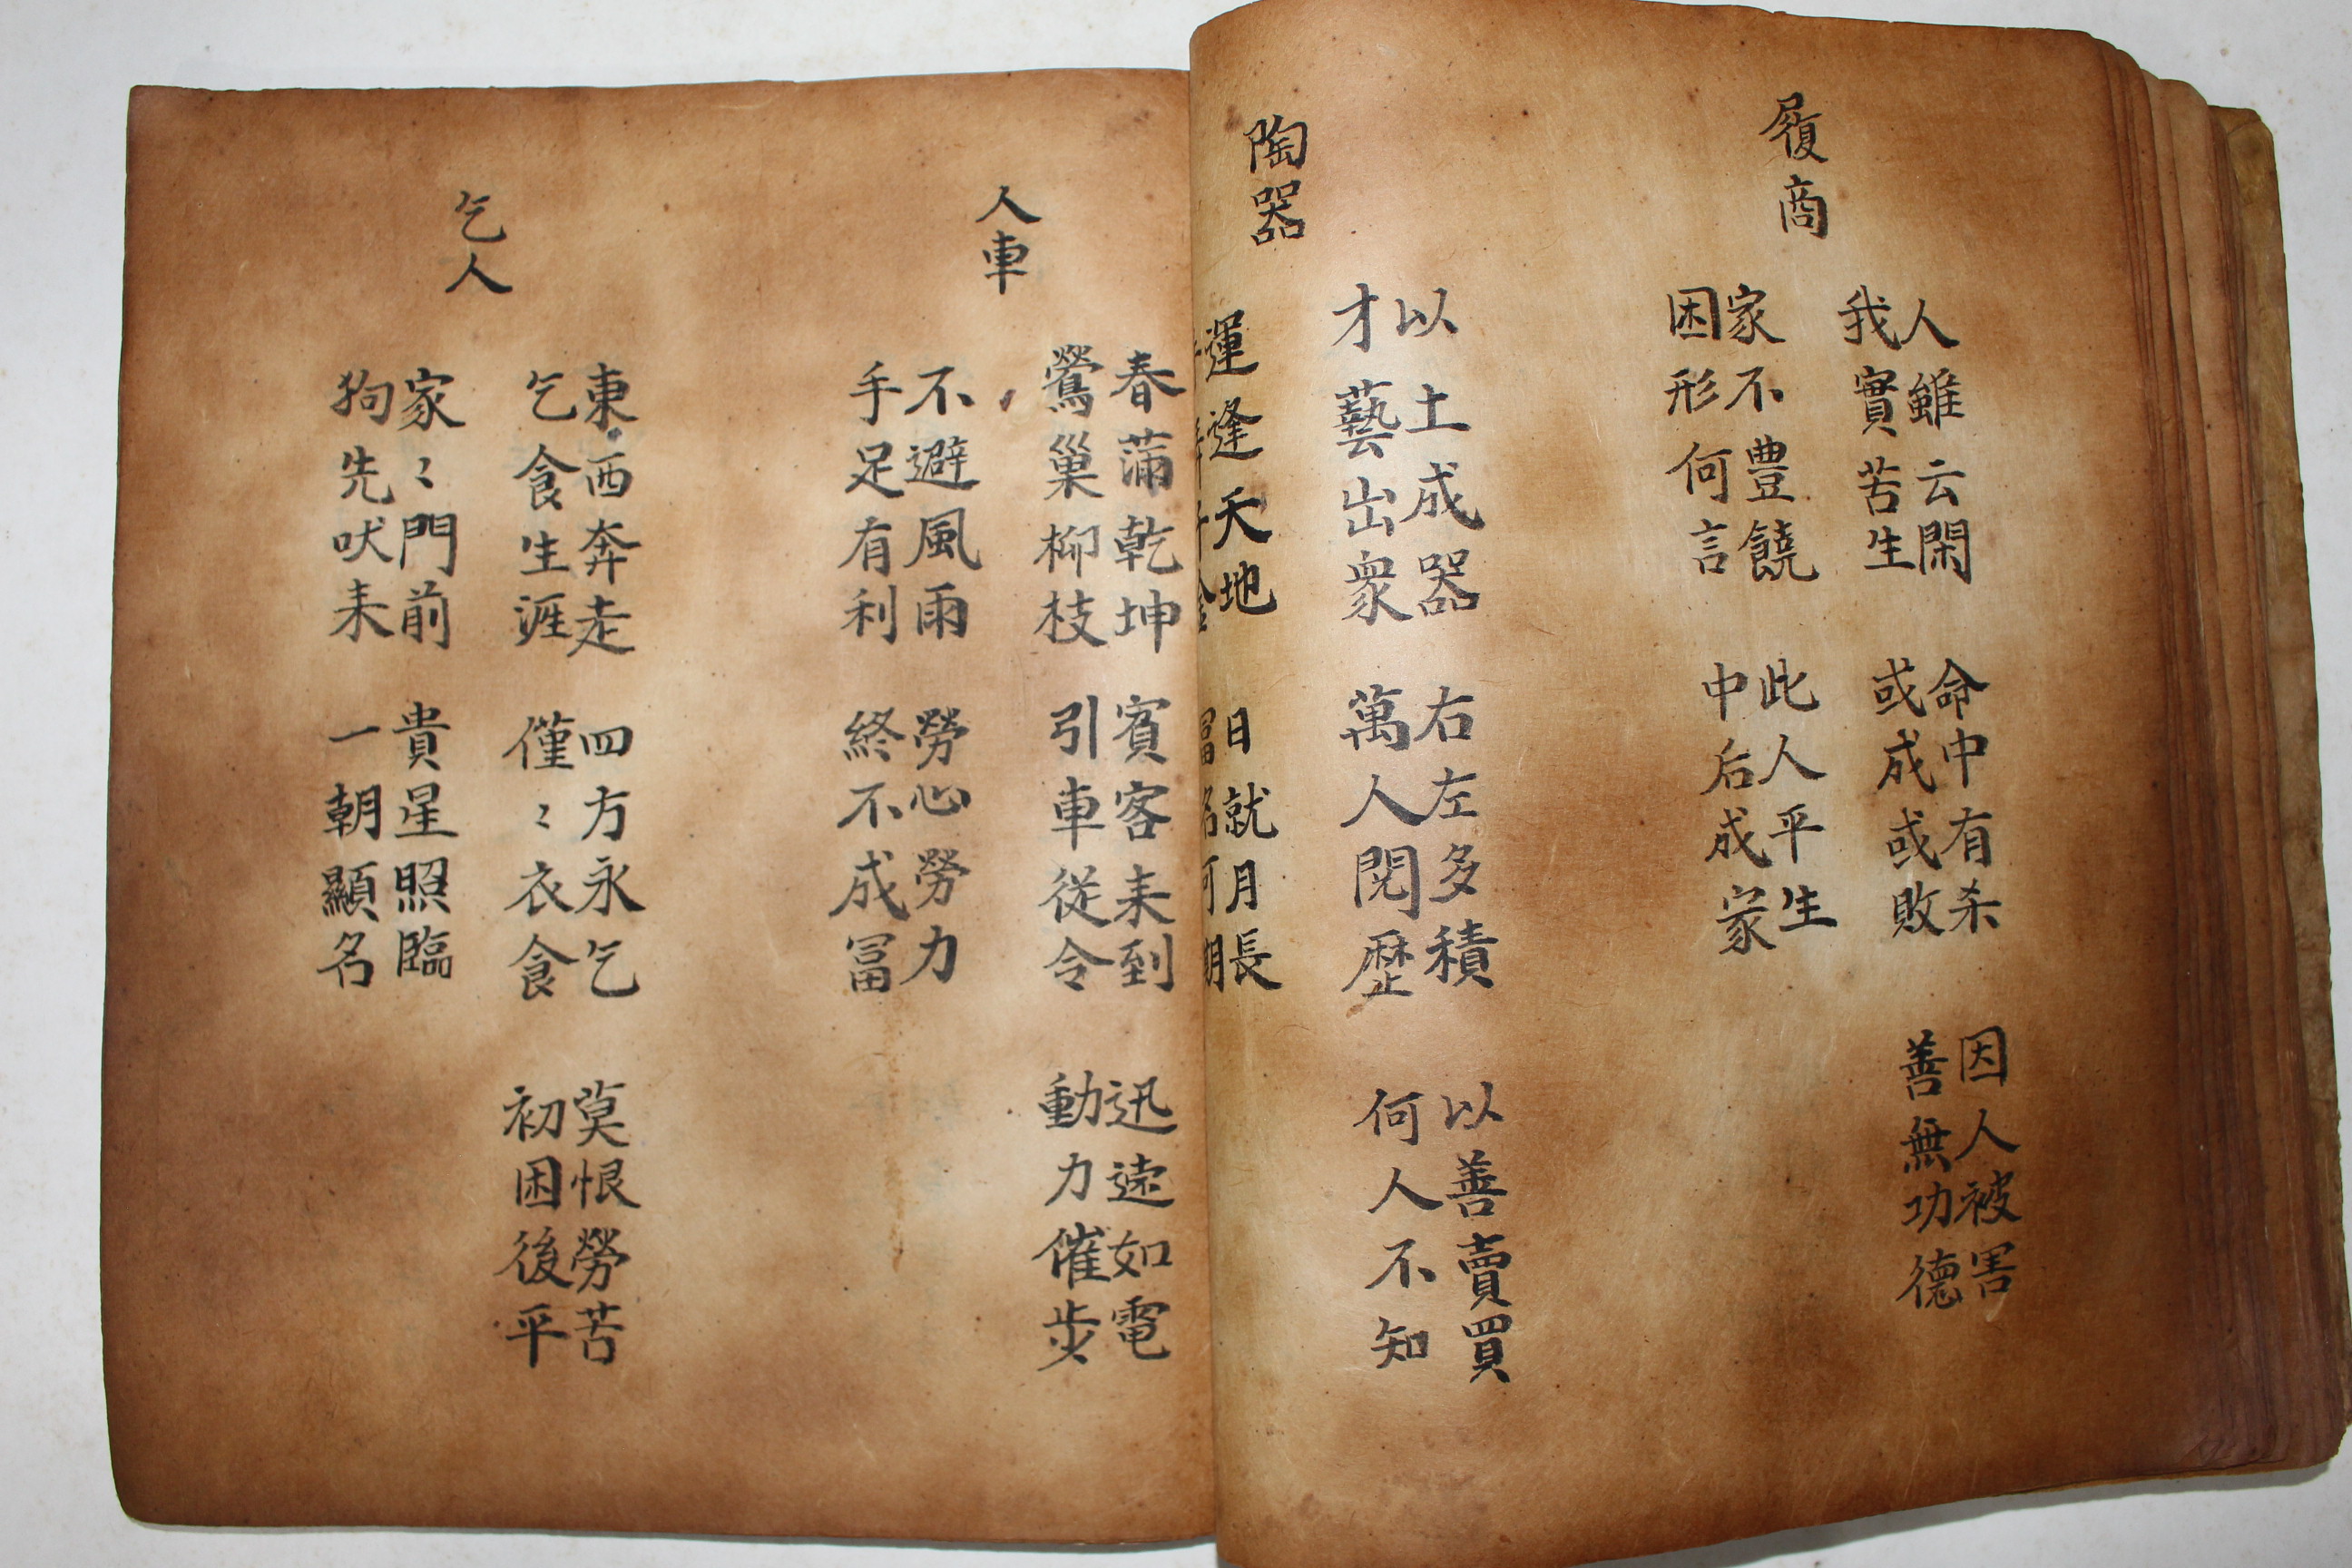 履商
人雖云閑 命中有杀 因人被害
我實苦生 或成或敗 善無功德
家不豊饒 此人平生
困形何言 中后成家
陶器
以土成器 右左多積 以善賣買
才藝出衆 萬人閲歷 何人不知
運逢天地 日就月長
人車
春蒲乾坤 賓客来到 迅速如電
鶯巢柳枝 引車従令 動力催步
不避風雨 勞心勞力
手足有利 終不成冨
乞人
東西奔走 四方永乞 莫恨勞苦
乞食生涯 僅〻衣食 初困後平
家〻門前 貴星照臨
狗先吠来 一朝顯名